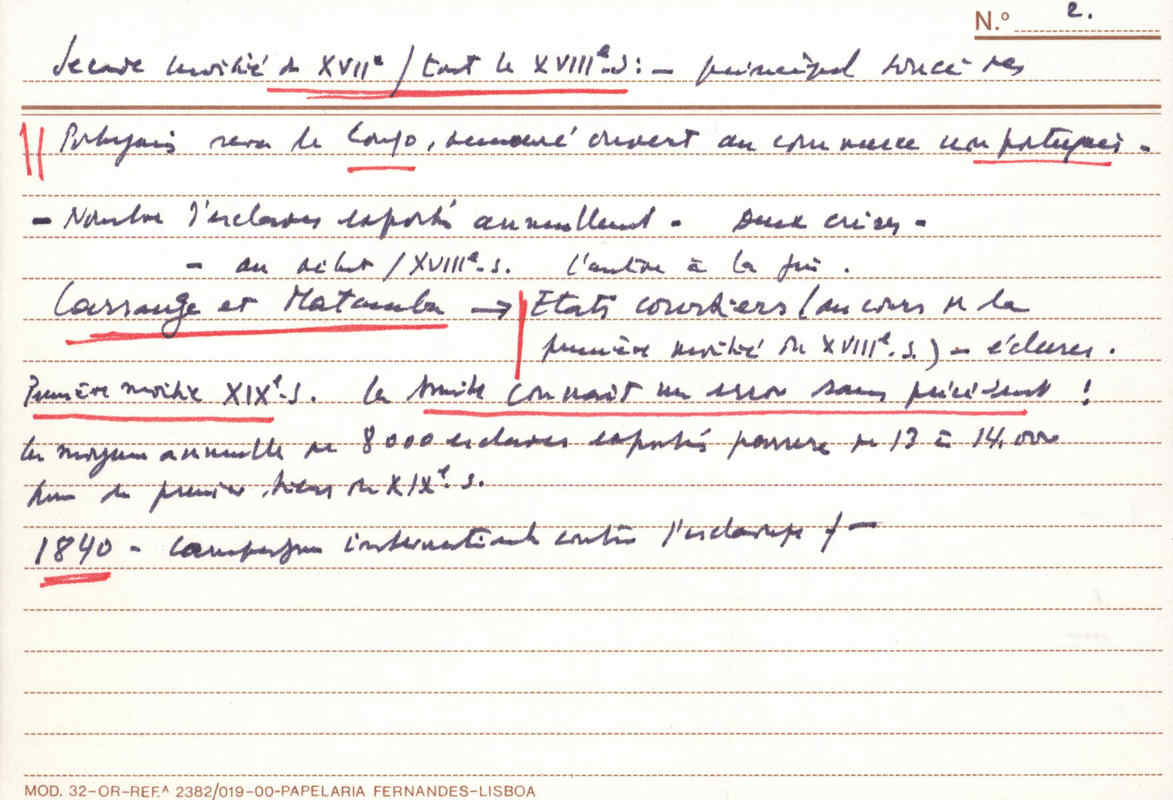 N.º 2.
Seconde moitié du XVIIe / tout le XVIIIe.s: – principal souci des
Portugais sera le Congo, demeuré ouvert au commerce non portugais –
– Nombre d'esclaves exportés annuellement – Deux crises –
– au début / XVIIIe.s. l'autre à la fin.
Cassange et Matamba → Etats courtiers (au cours de la
première moitié du XVIIIe.s.) –
Première moitié XIXe.s. la traite connait un essor sans précédent !
la moyenne annuelle de 8000 esclaves exportés passera de 13 à 14.000
premier tiers du XIXe.s.
1840 – campagne internationale contre l'esclavage
MOD. 32-OR-REF.ª 2382/019-00-PAPELARIA FERNANDES-LISBOA